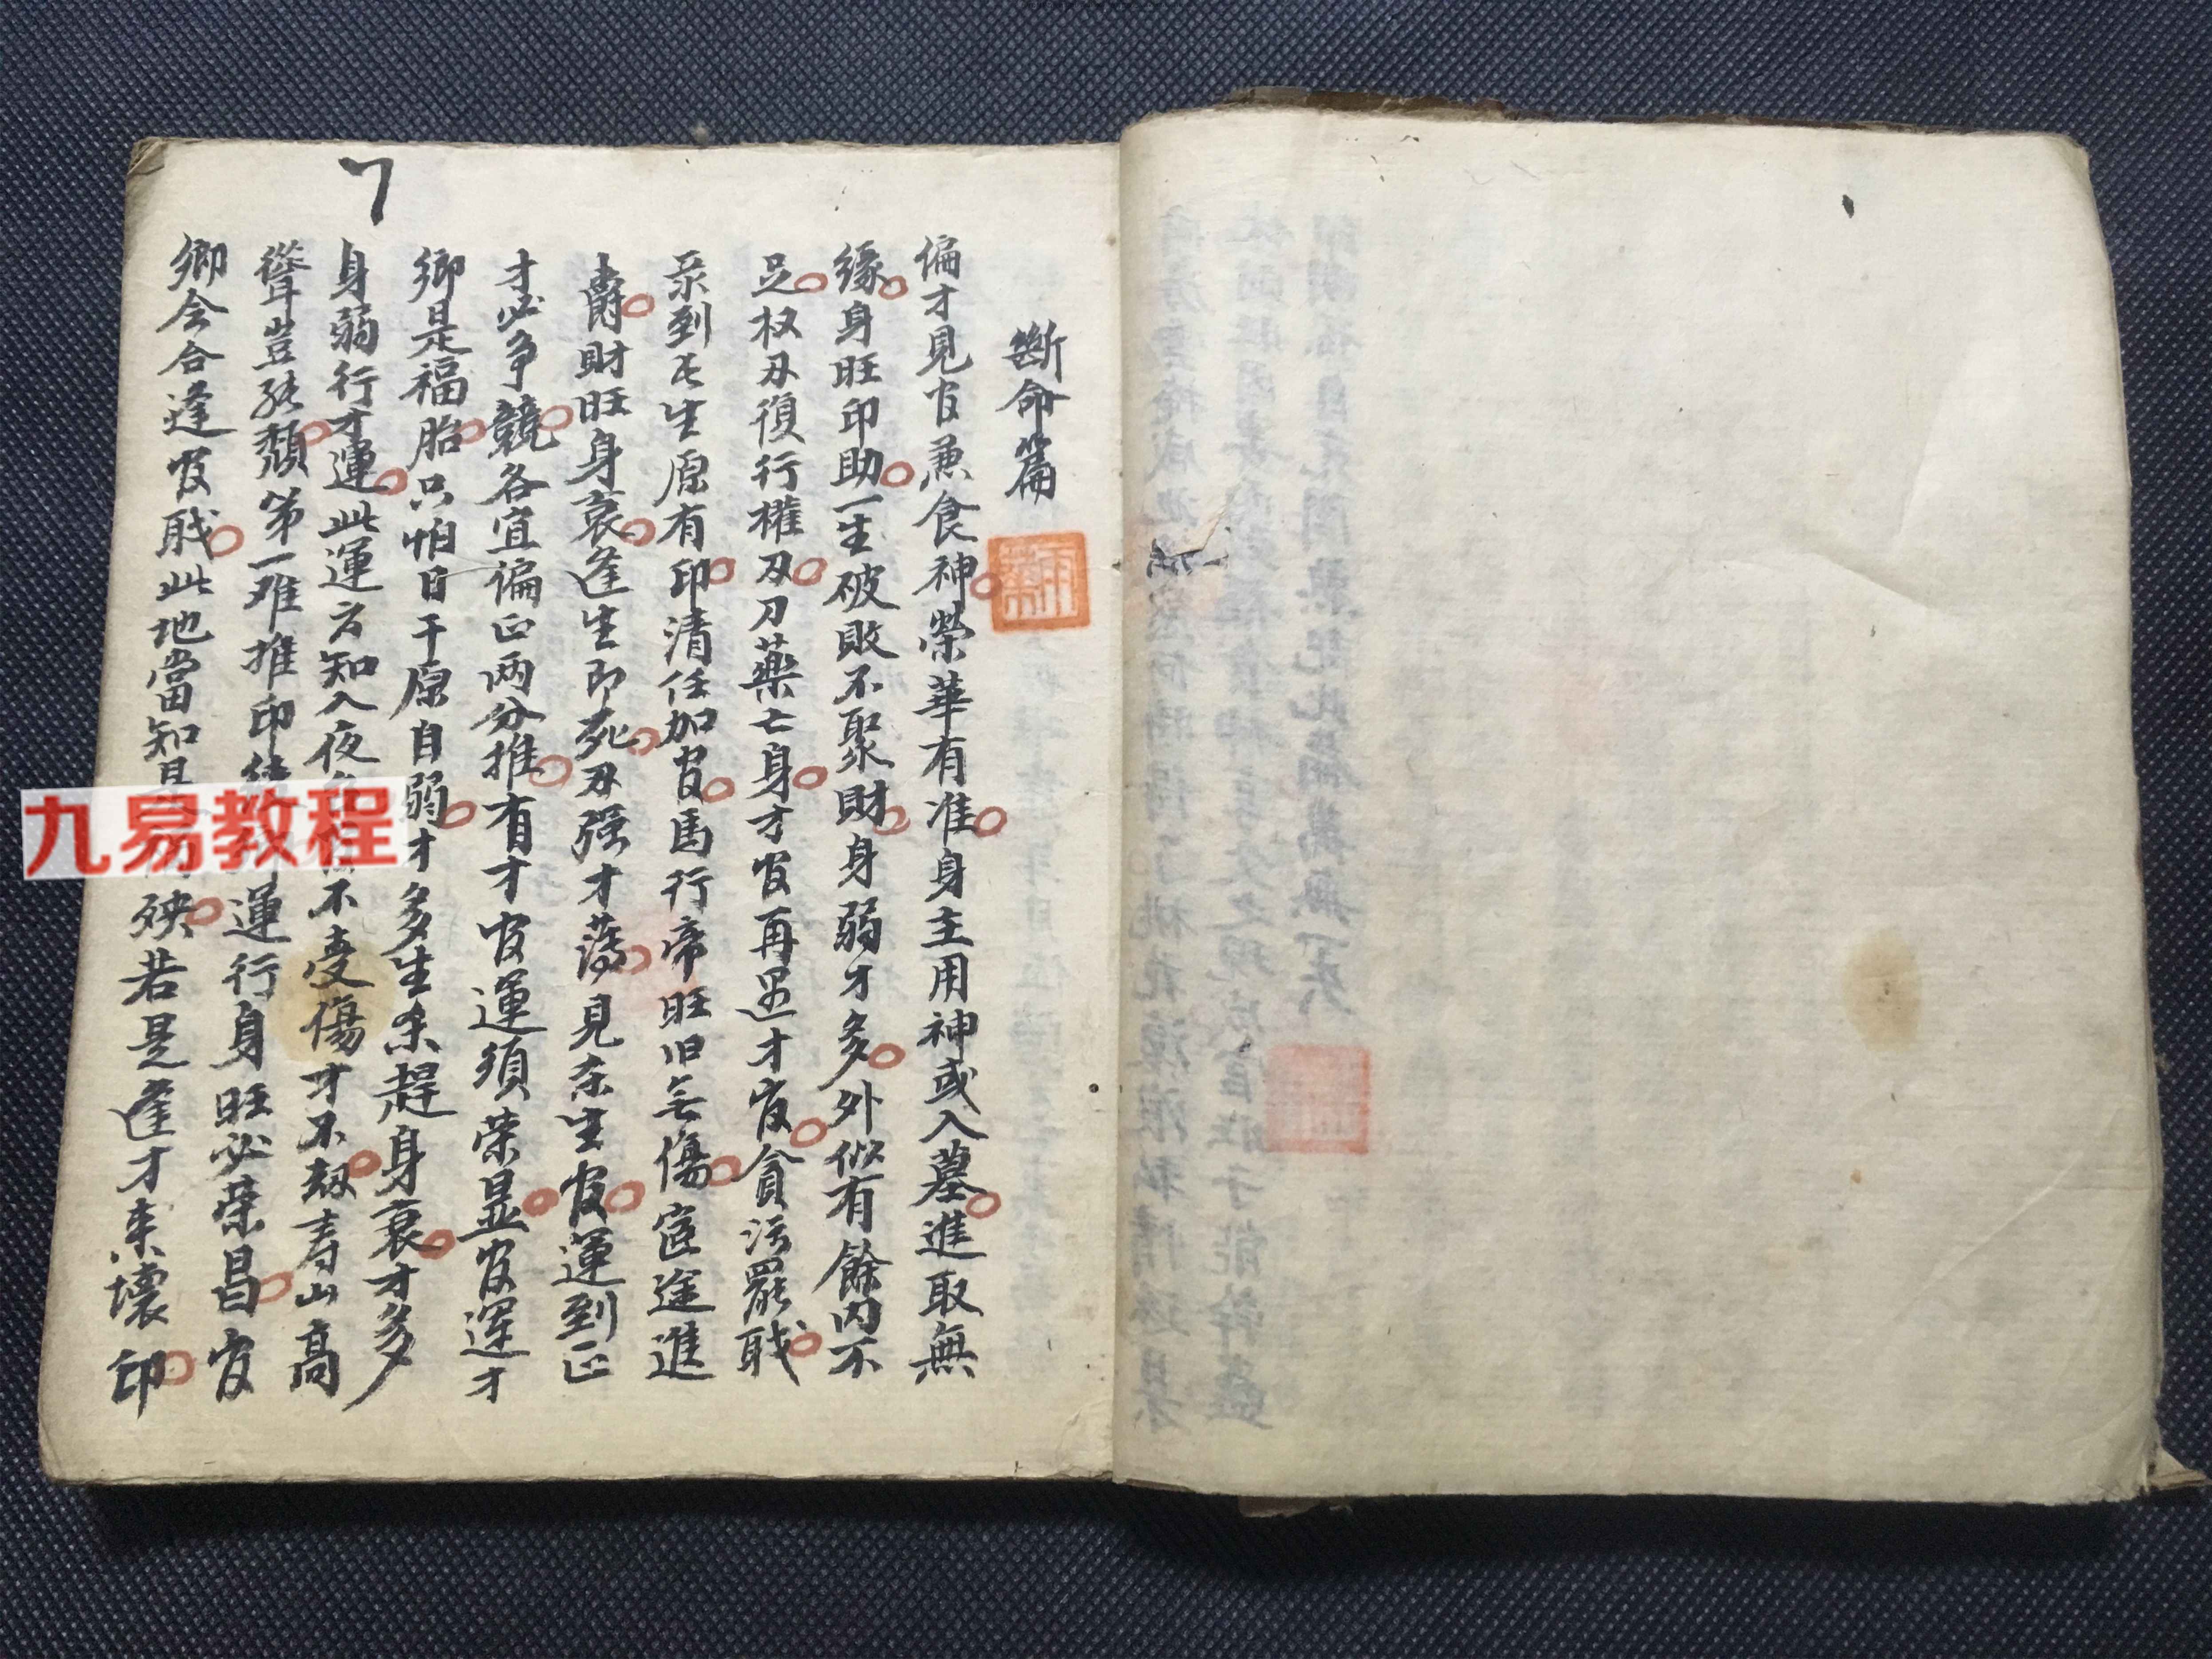 斷命篇
偏才見官兼食神榮華有准身主用神或入墓進取無
緣身旺印助一生破敗不聚財身弱才多外似有餘内不
足权刃復行權刃刀藥亡身才官再遇才官貪污罷職
到長生原有印清任加官馬行帝旺旧无傷宦途進
爵財旺身衰逢生即死刃强才薄見杀生官運到正
才必争競各宜偏正两分推有才官運須荣显官運才
鄉是福胎只怕日干原自弱才多生杀趕身衰才多
身弱行才運此運方知入夜不受傷才不刼寿山高
聳豈能頹第一难推印運行身旺必荣昌官
鄉会合逢官職此地當知是殃若是逢才来壞印
7
九易教程